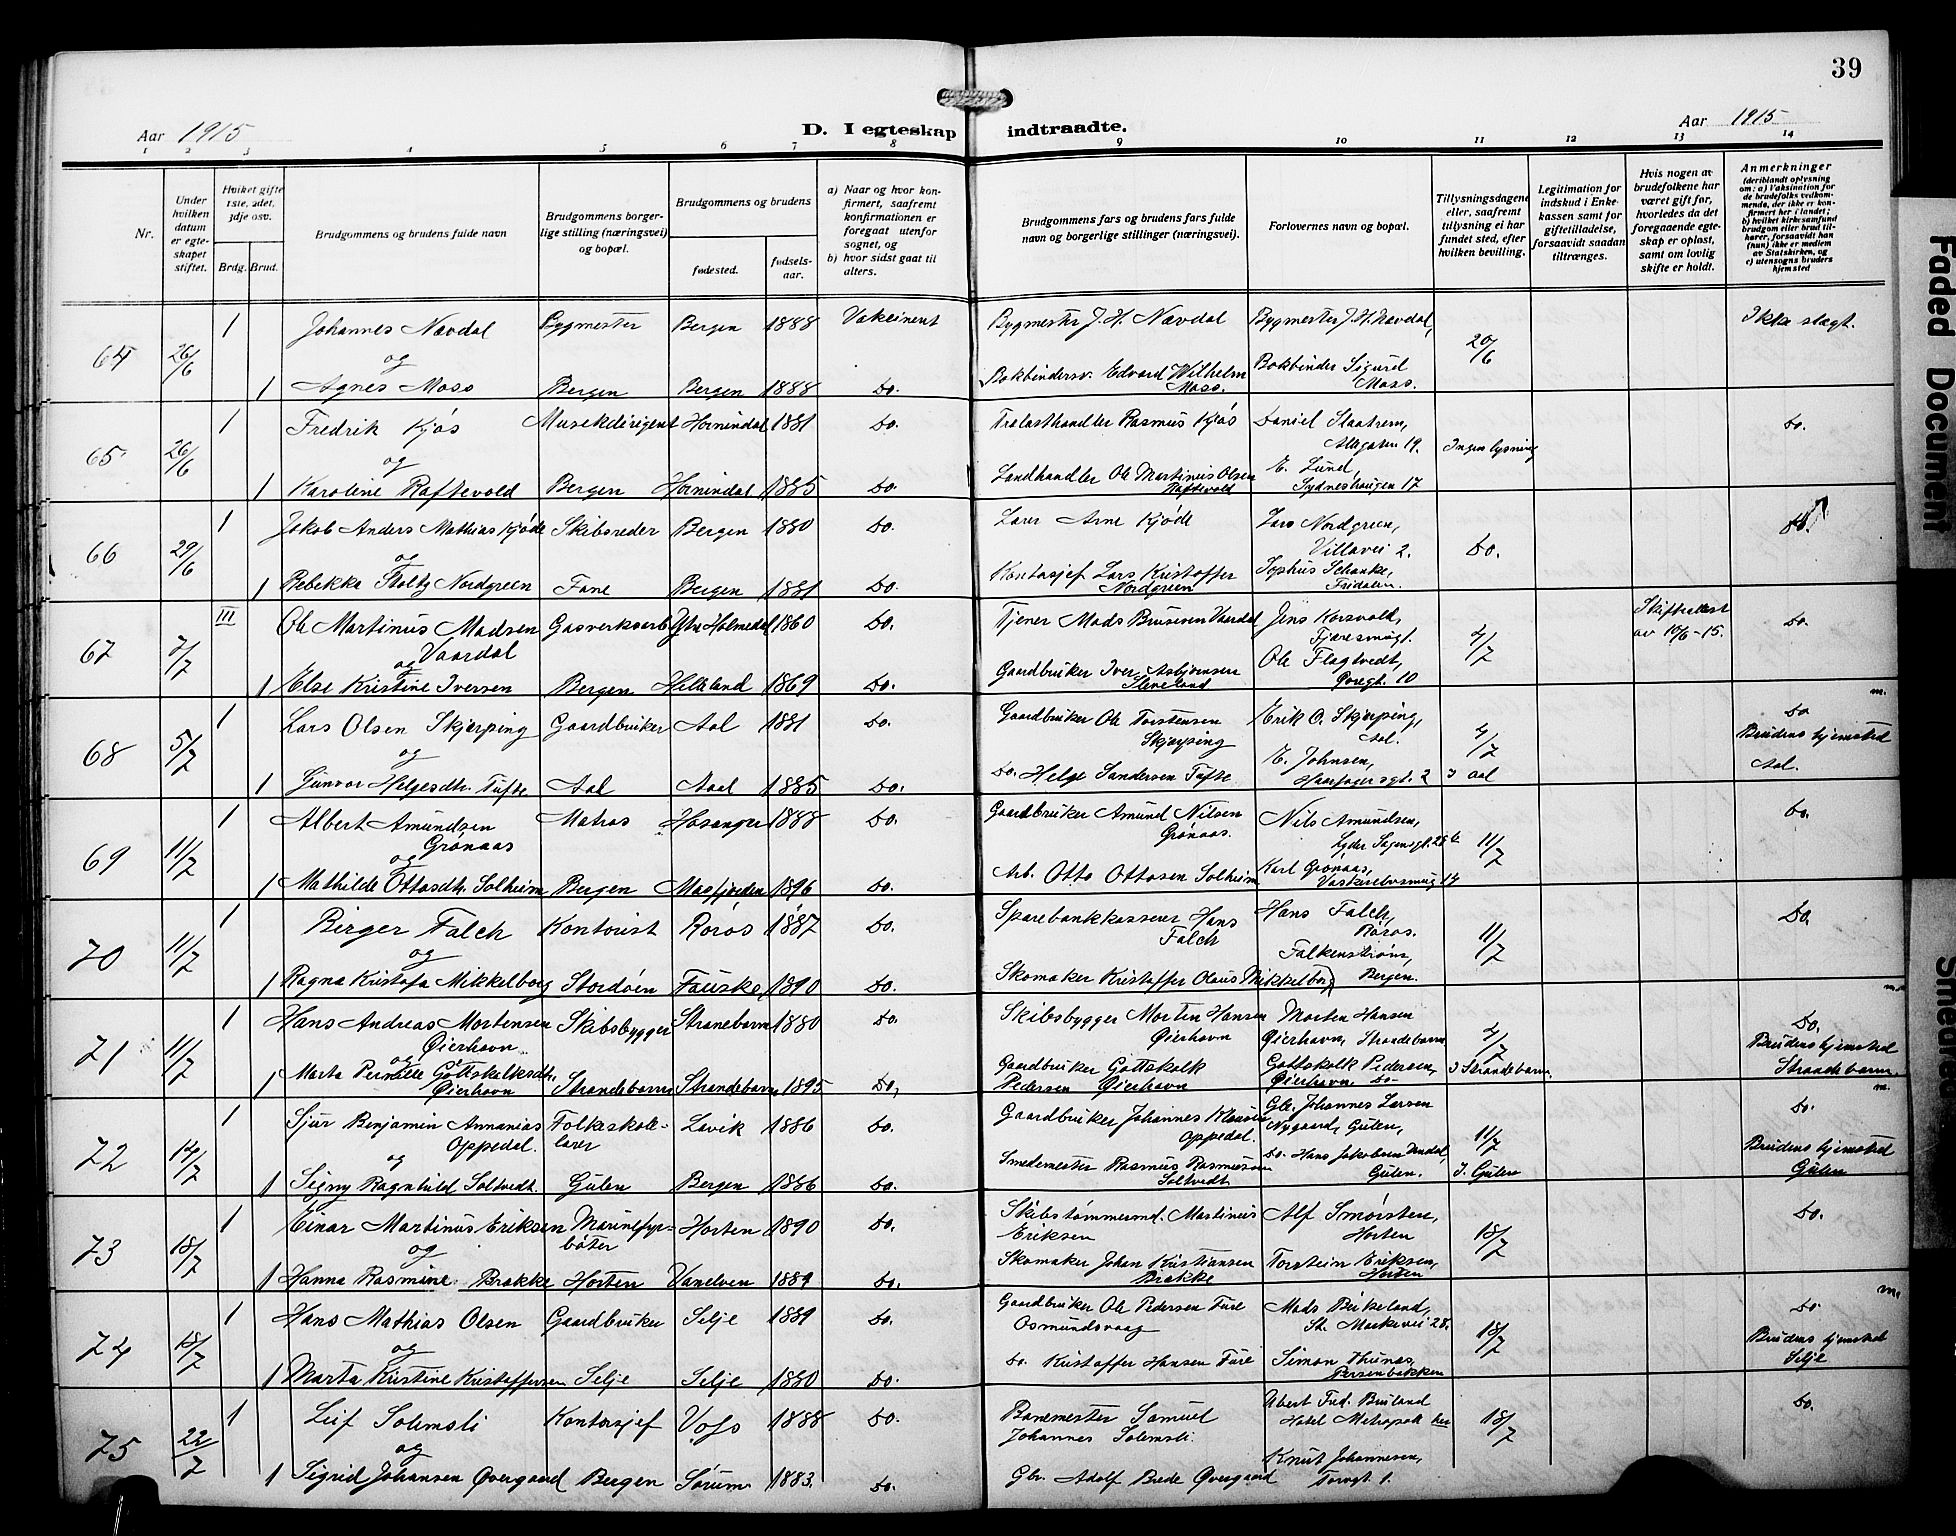 39
Aar 1915
D. I egteskap indtraadte.
Aar 1915
1 2 3 4 5 6 7 8 9 10 11 12 13 14
Nr.
Under hvilken datum er egteskapet stiftet.
Hvilket gifte 1ste, 2det, 3dje osv.
Brdg. Brud.
Brudgommens og brudens fulde navn
Brudgommens borgerlige stilling (næringsvei) og bopæl.
Brudgommens og brudens
fødested.
fødselsaar.
a) Naar og hvor konfirmert, saafremt konfirmationen er foregaat utenfor sognet, og
b) hvor sidst gaat til alters.
Brudgommens fars og brudens fars fulde navn og borgerlige stillinger (næringsvei).
Forlovernes navn og bopæl.
Tillysningsdagene eller, saafremt tillysning ei har fundet sted, efter hvilken bevilling.
Legitimation for indskud i Enkekassen samt for giftetilladelse, forsaavidt saadan tiltrænges.
Hvis nogen av brudefolkene har været gift før, hvorledes da det foregaaende egteskap er opløst, samt om lovlig skifte er holdt.
Anmerkninger
(deriblandt oplysning om: a) Vaksination for de brudefolks vedkommende, der ikke er konfirmert her i landet; b) hvilket kirkesamfund brudgom eller brud tilhører, forsaavidt han (hun) ikke er medlem av Statskirken, og c) utensogns bruders hjemsted
64 26/6 1 Johannes Nævdal Bygmester Bergen 1888 Vaksinert Bygmester J. H. Nævdal Bygmester J. H. Nævdal, 20/6 Ikke slægt.
og
1 Agnes Moss Bergen Bergen 1888 Do. Bokbindersv. Edvard Wilhelm Moss. Bokbinder Sigurd Moss.
65 26/6 1 Fredrik Kjós Musikdirigent Hornindal 1881 Do. Trælasthandler Rasmus Kjós Daniel Staatrem, Allégaten 19. Ingen lysning Do.
og
1 Karoline Raftevold Bergen Hornindal 1885 Do. Landhandler Ole Martinius Olsen Raftevold E. Lund, Sydneshaugen 17
66 29/6 1 Jakob Anders Mathias Kjøde Skibsreder Bergen 1880 Lærer Arne Kjøde Lars Nordgreen, Villavei 2. Do. Do.
og
1 Rebekka Stoltz Nordgreen Fane Bergen 1881 Do. Kontorsjef Lars Kristoffer Nordgreen Sophus Schanke, Fridalen.
67 2/7 III Ole Martinus Madsen Vaardal Gasverksarb. Ytre Holmedal 1860 Do. Tjener Mads Brusesen Vaardal Jens Korsvold, 4/7 Skifteattest av 10/6-15. Do.
og
1 Else Kristine Iversen Bergen Helleland 1869 Do. Gaardbruker Iver Asbjørnsen Steneland Ole Flagtvedt, Øvregt. 10
68 5/7 1 Lars Olsen Skjerping Gaardbruker Aal 1881 Do. Gaardbruker Ole Torstensen Skjerping Erik O. Skjerping, Aal. 4/7 m. Do Brudens hjemsted Aal.
og
1 Gunvor Helgesdtr. Tufte Aal Aal 1885 Do. Do. Helge Sandersen Tufte E. Johnsen, Haarfagersgt. 2 I Aal
69 11/7 1 Albert Amundsen Grønaas Matros Hosanger 1888 Do. Gaardbruker Amund Nilsen Grønaas. Nils Amundsen, Lyder Sagensgt. 11/7 Do.
og
1 Mathilde Ottosdtr. Solheim Bergen Masfjorden 1896 Do. Arb. Otto Ottosen Solheim Karl Grønaas,
70 11/7 1 Birger Falch Kontorist Røros 1887 Do. Sparebankkasserer Hans Falch Hans Falch, Røros. 11/7 Do.
og
1 Ragna Kristofa Mikkelborg Stordøen Fauske 1890 Do. Skomaker Kristoffer Olaus Mikkelborg Falkenstrøm, Bergen.
71 11/7 1 Hans Andreas Mortensen Øierhavn Skibsbygger Stranebarm 1880 Do. Skibsbygger Morten Hansen Øierhavn Morten Hansen Øierhavn, Strandebarm 4/7 m. Do. Brudens hjemsted Strandebarm.
og
1 Marta Pernille Gottskalksdtr. Øierhavn Strandebarm Strandebarm 1895 Do. Gaardbruker Gottskalk Pedersen Øierhavn Gottskalk Pedersen, Øierhavn. Do. I Strandebarm.
72 14/7 1 Sjur Benjamin Annanias Oppedal. Folkeskolelærer Lavik 1886 Do. Gaardbruker Johannes Klausen Oppedal. Gbr. Johannes Larsen Nygaard, Gulen, 11/7 m. Do. Brudens hjemsted Gulen
og
1 Signy Ragnhild Soltvedt. Gulen Bergen 1886 Do. Smedemester Rasmus Rasmussen Soltvedt. Do. Hans Jakobsen Undal, Gulen. I. Gulen
73 18/7 1 Einar Martinus Eriksen Marinefyrbøter Horten 1890 Do. Skibstømmermd. Martinius Eriksen Alf Smørsten, Horten 18/7 Do.
og
1 Hanna Rasmine Brekke Horten Vanelven 1889 Do. Skomaker Johan Kristiansen Brekke Torstein Eriksen, Horten
74 18/7 1 Hans Mathias Olsen Gaardbruker Selje 1889 Do. Gaardbruker Ole Pedersen Fure Osmundsvaag Mads Birkeland, St. Markevei 28. 18/7 m. Do. Brudens hjemsted Selje
og
1 Marta Kristine Kristoffersen Selje Selje 1880 Do. Do. Kristoffer Hansen Fure Simon Thunes, Persenbakken
75 22/7 1 Leif Solemsli Kontorsjef Vofs 1888 Do. Banemester Samuel Johannes Solemsli. Albert Fred. Bruland Hotel Metropole her 18/7 Do.
og
1 Sigrid Johansen Øvergaard Bergen Sørum 1883. Do. Gbr. Adolf Brede Øvergaard Knut Johannesen, Torvgt. 1.
Faded Document
Smeared